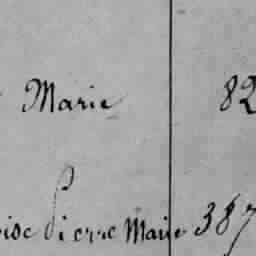 Marie 82
Pierre Marie 387